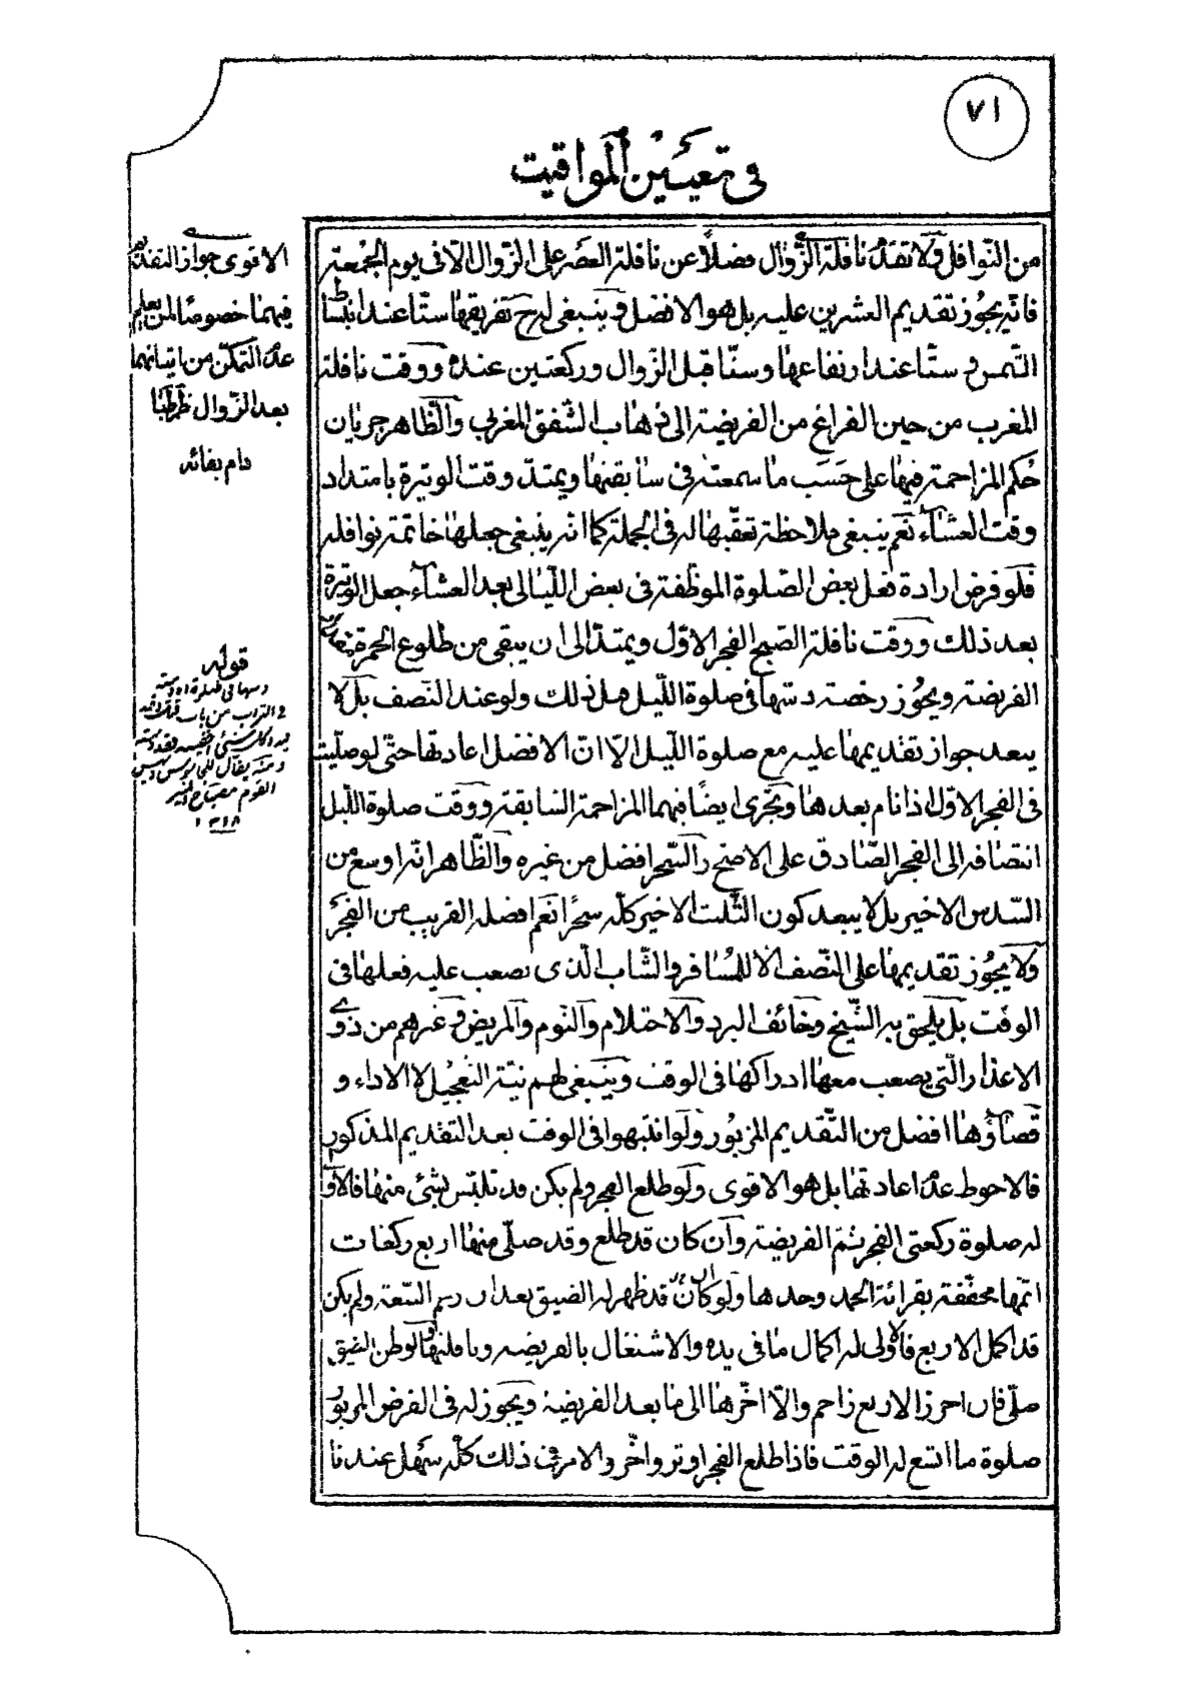 ٧١
في تعيين المواقيت
من النّوافل ولا تقدّم نافلة الزّوال فضلاً عن نافلة العصر على الزّوال الّا في يوم الجمعة
فانّه يجوز تقديم العشرين عليه بل هو الافضل وينبغي له ح تفريقها ستّا عند انبساط
الشّمس و ستّا عند ارتفاعها وستّا قبل الزّوال وركعتين عنده ووقت نافلة
المغرب من حين الفراغ من الفريضة الى ذهاب الشّفق المغربي والظّاهر جريان
حكم المزاحمة فيها على حسب ما سمعته في سابقتها ويمتدّ وقت الوتيرة بامتداد
وقت العشاء نعم ينبغي ملاحظة تعقّبها له في الجملة كما انّه ينبغي جعلها خاتمة نوافله
فلو فرض ارادة فعل بعض الصّلوة الموظّفة في بعض اللّيالي بعد العشاء جعل الوتيرة
بعد ذلك ووقت نافلة الصّبح الفجر الاوّل ويمتدّ الى ان يبقى من طلوع الحمرة مقدار
الفريضة ويجوز رخصة دسّها في صلوة اللّيل قبل ذلك ولو عند النّصف بل لا
يبعد جواز تقديمها عليه مع صلوة اللّيل الّا انّ الافضل اعادتها حتّى لو صلّيت
في الفجر الاوّل اذا نام بعدها وتجرى ايضًا فيهما المزاحمة السّابقة ووقت صلوة اللّيل
انتصافه الى الفجر الصّادق على الاصحّ والسّحر افضل من غيره والظّاهر انّه اوسع من
السّدس الاخير بل لا يبعد كون الثّلث الاخير كلّه سحرًا نعم افضله القريب من الفجر
ولا يجوز تقديمها على النّصف الّا للمسافر والشّاب الّذى يصعب عليه فعلها في
الوقت بل يلحق به الشّيخ وخائف البرد والاحتلام والنّوم والمريض وغيرهم من ذوي
الاعذار الّتي يصعب معها ادراكها في الوقت وينبغي لهم نيّة التّعجيل لا الاداء و
قضاؤها افضل من التّقديم المزبور ولو انتبهوا في الوقت بعد التقديم المذكور
فالاحوط عدم اعادتها بل هو الاقوى ولو طلع الفجر ولم يكن قد تلبّس بشئ منها فالاولى
له صلوة ركعتي الفجر ثمّ الفريضة وان كان قد طلع وقد صلّى منها اربع ركعات
اتمّها مخفّفة بقرائة الحمد وحدها ولو كان قد ظهر له الضيق بعد ان رسم السّعة ولم يكن
قد اكمل الاربع فالاولى له اكمال ما في يده والاشتغال بالفريضة وبافلتها ولو ظن الضيق
صلّى فان احرز الاربع زاحم والّا اخّرها الى ما بعد الفريضة ويجوز له في الفرض المزبور
صلوة ما اتّسع له الوقت فاذا طلع الفجر اوتر واخّر والامر في ذلك كلّه سهل عندنا
الاقوى جواز التقديم
فيهما خصوصًا لمن يعلم
عدم التمكّن من اتيانهما
بعد الزّوال ظ طبا
دام بقائه
قوله
دسها في صلوة
في التراب من باب
القوم مصباح المنير
١٣١٨